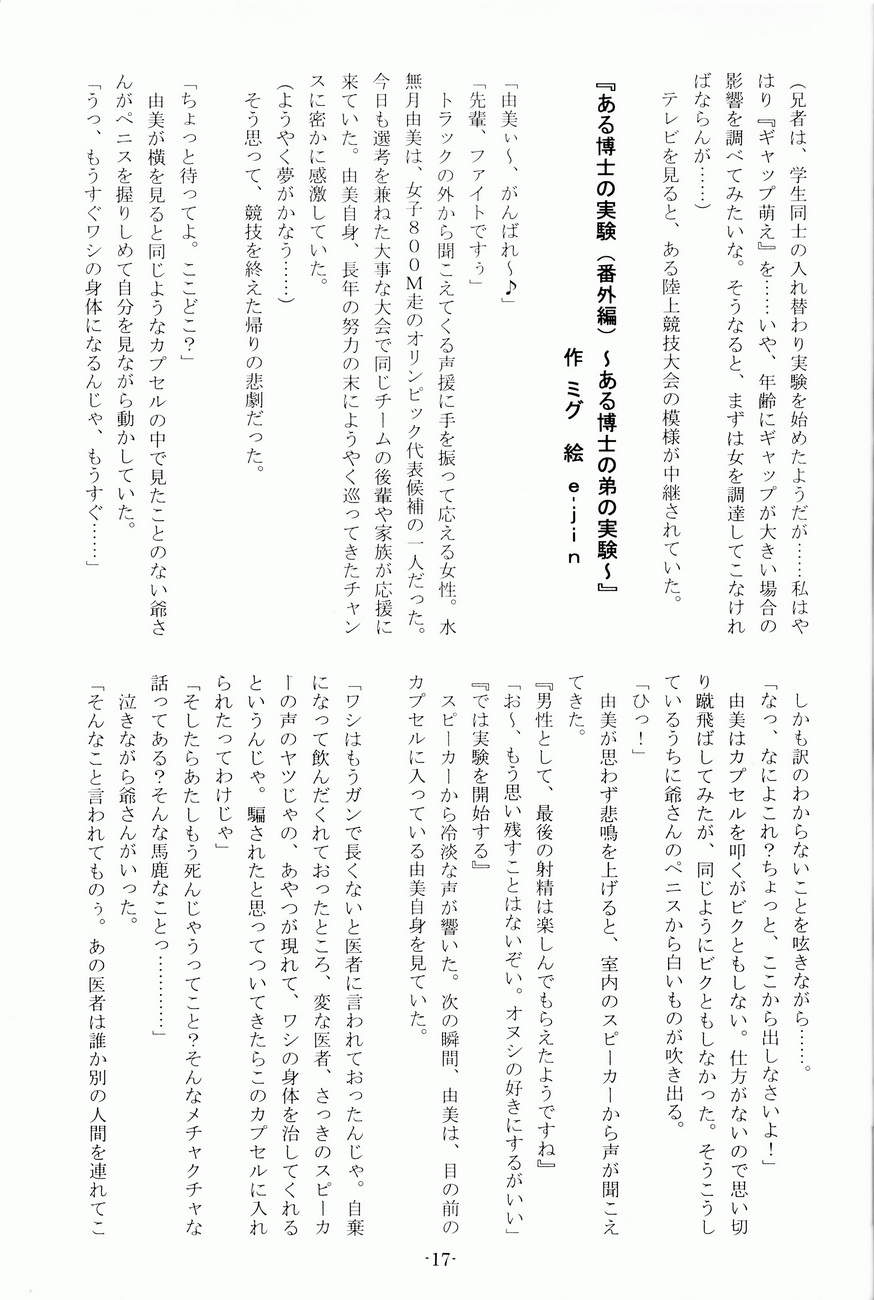 (兄者は、学生同士の入れ替わり実験を始めたようだが……私はや
はり『ギャップ萌え』を……いや、年齢にギャップが大きい場合の
影響を調べてみたいな。そうなると、まずは女を調達してこなけれ
ばならんが……)
テレビを見ると、ある陸上競技大会の模様が中継されていた。
『ある博士の実験(番外編) ~ある博士の弟の実験~』
作 ミグ 絵 e-jin
「由美ぃ~、がんばれ~♪」
「先輩、ファイトですぅ」
トラックの外から聞こえてくる声援に手を振って応える女性。水
無月由美は、女子800M走のオリンピック代表候補の一人だった。
今日も選考を兼ねた大事な大会で同じチームの後輩や家族が応援に
来ていた。由美自身、長年の努力の末にようやく巡ってきたチャン
スに密かに感激していた。
(ようやく夢がかなう……)
そう思って、競技を終えた帰りの悲劇だった。
「ちょっと待ってよ。ここどこ?」
由美が横を見ると同じようなカプセルの中で見たことのない爺さ
んがペニスを握りしめて自分を見ながら動かしていた。
「うっ、もうすぐワシの身体になるんじゃ、もうすぐ……」
しかも訳のわからないことを呟きながら……。
「なっ、なによこれ?ちょっと、ここから出しなさいよ!」
由美はカプセルを叩くがビクともしない。仕方がないので思い切
り蹴飛ばしてみたが、同じようにビクともしなかった。そうこうし
ているうちに爺さんのペニスから白いものが吹き出る。
「ひっ!」
由美が思わず悲鳴を上げると、室内のスピーカーから声が聞こえ
てきた。
『男性として、最後の射精は楽しんでもらえたようですね』
「お~、もう思い残すことはないぞい。オヌシの好きにするがいい」
『では実験を開始する』
スピーカーから冷淡な声が響いた。次の瞬間、由美は、目の前の
カプセルに入っている由美自身を見ていた。
「ワシはもうガンで長くないと医者に言われておったんじゃ。自棄
になって飲んだくれておったところ、変な医者、さっきのスピーカ
ーの声のヤツじゃの、あやつが現れて、ワシの身体を治してくれる
というんじゃ。騙されたと思ってついてきたらこのカプセルに入れ
られたってわけじゃ」
「そしたらあたしもう死んじゃうってこと?そんなメチャクチャな
話ってある?そんな馬鹿なことっ…………」
泣きながら爺さんがいった。
「そんなこと言われてものぅ。あの医者は誰か別の人間を連れてこ
-17-